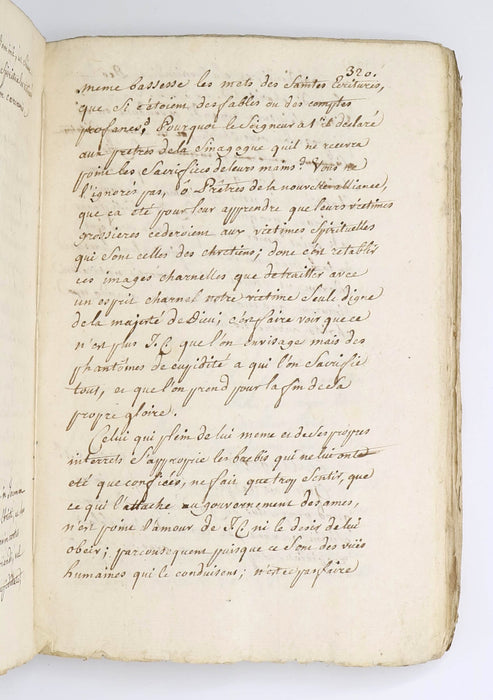 320.
meme bassesse les mots des Saintes Ecritures,
que si c'étoient des fables ou des comptes
profanes? Pourquoi le Seigneur a t'il déclaré
aux pretres de la Sinagogue quil ne recevra
point les Sacrifices de leurs mains? Vous ne
l'ignorés pas, ô Prêtres de la nouvelle alliance,
que ca été pour leur apprendre que leurs victimes
grossieres cederoient aux victimes spirituelles
qui sont celles des chretiens; donc c'est retablir
ces images charnelles que de traitter avec
un esprit charnel notre victime seule digne
de la majesté de Dieu; c'est faire voir que ce
n'est plus J. C. que l'on envisage mais des
phantômes de cupidité a qui l'on Sacrifie
tout, et que l'on prend pour la fin de sa
propre gloire.
Celui qui plein de lui meme et de Ses propres
interrets s'approprie les brebis qui ne lui ont
eté que confiées, ne fait que trop Sentir, que
ce qui l'attache au gouvernement des ames,
n'est point l'amour de J. C. ni le desir de lui
obeir; par consequent puisque ce Sont des vües
humaines qui le conduisent; n'est ce pas faire